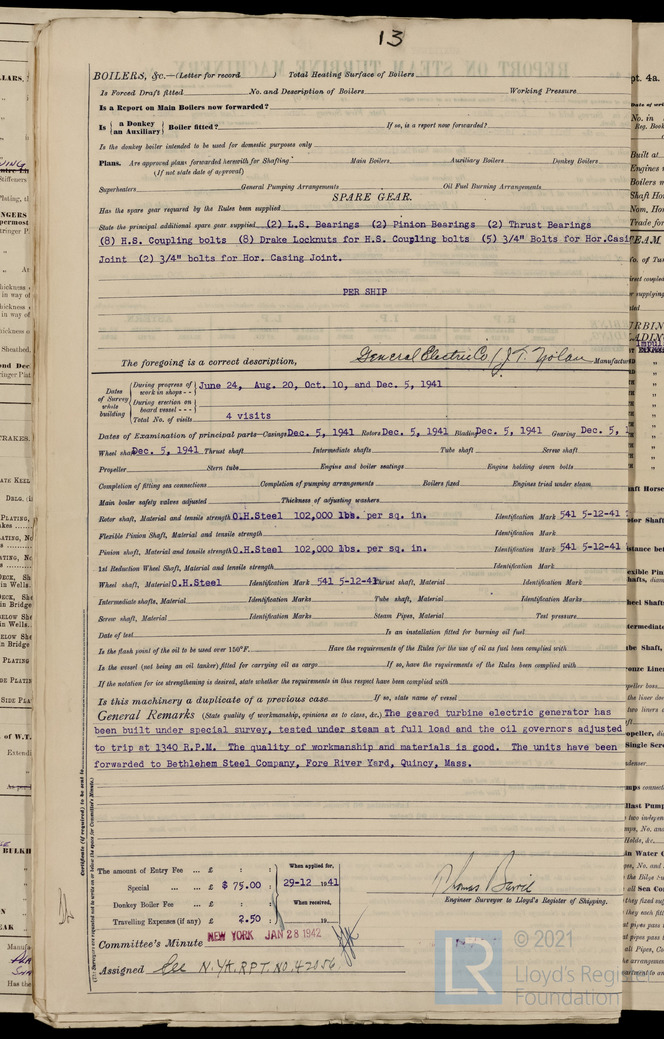 13
BOILERS, &c.—(Letter for record ) Total Heating Surface of Boilers
Is Forced Draft fitted No. and Description of Boilers Working Pressure
Is a Report on Main Boilers now forwarded?
Is { a Donkey
an Auxiliary } Boiler fitted? If so, is a report now forwarded?
Is the donkey boiler intended to be used for domestic purposes only
Plans. Are approved plans forwarded herewith for Shafting Main Boilers Auxiliary Boilers Donkey Boilers
(If not state date of approval)
Superheaters General Pumping Arrangements Oil Fuel Burning Arrangements
SPARE GEAR.
Has the spare gear required by the Rules been supplied
State the principal additional spare gear supplied (2) L.S. Bearings (2) Pinion Bearings (2) Thrust Bearings
(8) H.S. Coupling bolts (8) Drake Locknuts for H.S. Coupling bolts (5) 3/4" Bolts for Hor.Casi
Joint (2) 3/4" bolts for Hor. Casing Joint.
PER SHIP
The foregoing is a correct description, General Electric Co / J.T. Nolan Manufactur
Dates of Survey while building
During progress of work in shops - - June 24, Aug. 20, Oct. 10, and Dec. 5, 1941
During erection on board vessel - - -
Total No. of visits 4 visits
Dates of Examination of principal parts—Casings Dec. 5, 1941 Rotors Dec. 5, 1941 Blading Dec. 5, 1941 Gearing Dec. 5, 1
Wheel shaft Dec. 5, 1941 Thrust shaft Intermediate shafts Tube shaft Screw shaft
Propeller Stern tube Engine and boiler seatings Engines holding down bolts
Completion of fitting sea connections Completion of pumping arrangements Boilers fixed Engines tried under steam
Main boiler safety valves adjusted Thickness of adjusting washers
Rotor shaft, Material and tensile strength O.H.Steel 102,000 lbs. per sq. in. Identification Mark 541 5-12-41
Flexible Pinion Shaft, Material and tensile strength Identification Mark
Pinion shaft, Material and tensile strength O.H.Steel 102,000 lbs. per sq. in. Identification Mark 541 5-12-41
1st Reduction Wheel Shaft, Material and tensile strength Identification Mark
Wheel shaft, Material O.H.Steel Identification Mark 541 5-12-41 Thrust shaft, Material Identification Mark
Intermediate shafts, Material Identification Marks Tube shaft, Material Identification Marks
Screw shaft, Material Identification Marks Steam Pipes, Material Test pressure
Date of test Is an installation fitted for burning oil fuel
Is the flash point of the oil to be used over 150°F. Have the requirements of the Rules for the use of oil as fuel been complied with
Is the vessel (not being an oil tanker) fitted for carrying oil as cargo If so, have the requirements of the Rules been complied with
If the notation for ice strengthening is desired, state whether the requirements in this respect have been complied with
Is this machinery a duplicate of a previous case If so, state name of vessel
General Remarks (State quality of workmanship, opinions as to class, &c.) The geared turbine electric generator has
been built under special survey, tested under steam at full load and the oil governors adjusted
to trip at 1340 R.P.M. The quality of workmanship and materials is good. The units have been
forwarded to Bethlehem Steel Company, Fore River Yard, Quincy, Mass.
Certificate (if required) to be sent to
(The Surveyors are requested not to write on or below the space for Committee's Minute.)
The amount of Entry Fee ... £ : : When applied for,
Special ... ... £ $ 75.00 : 29-12 1941
Donkey Boiler Fee ... £ : : When received,
Travelling Expenses (if any) £ 2.50 : 19
Engineer Surveyor to Lloyd's Register of Shipping.
Committee's Minute NEW YORK JAN 28 1942
Assigned See N.YK.RPT.NO.42056
LR
© 2021
Lloyd's Register
Foundation